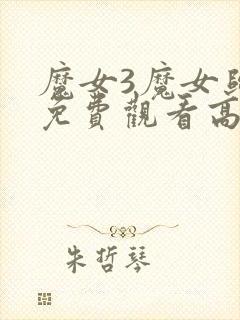 魔女3魔女
免費觀看高
朱哲琴